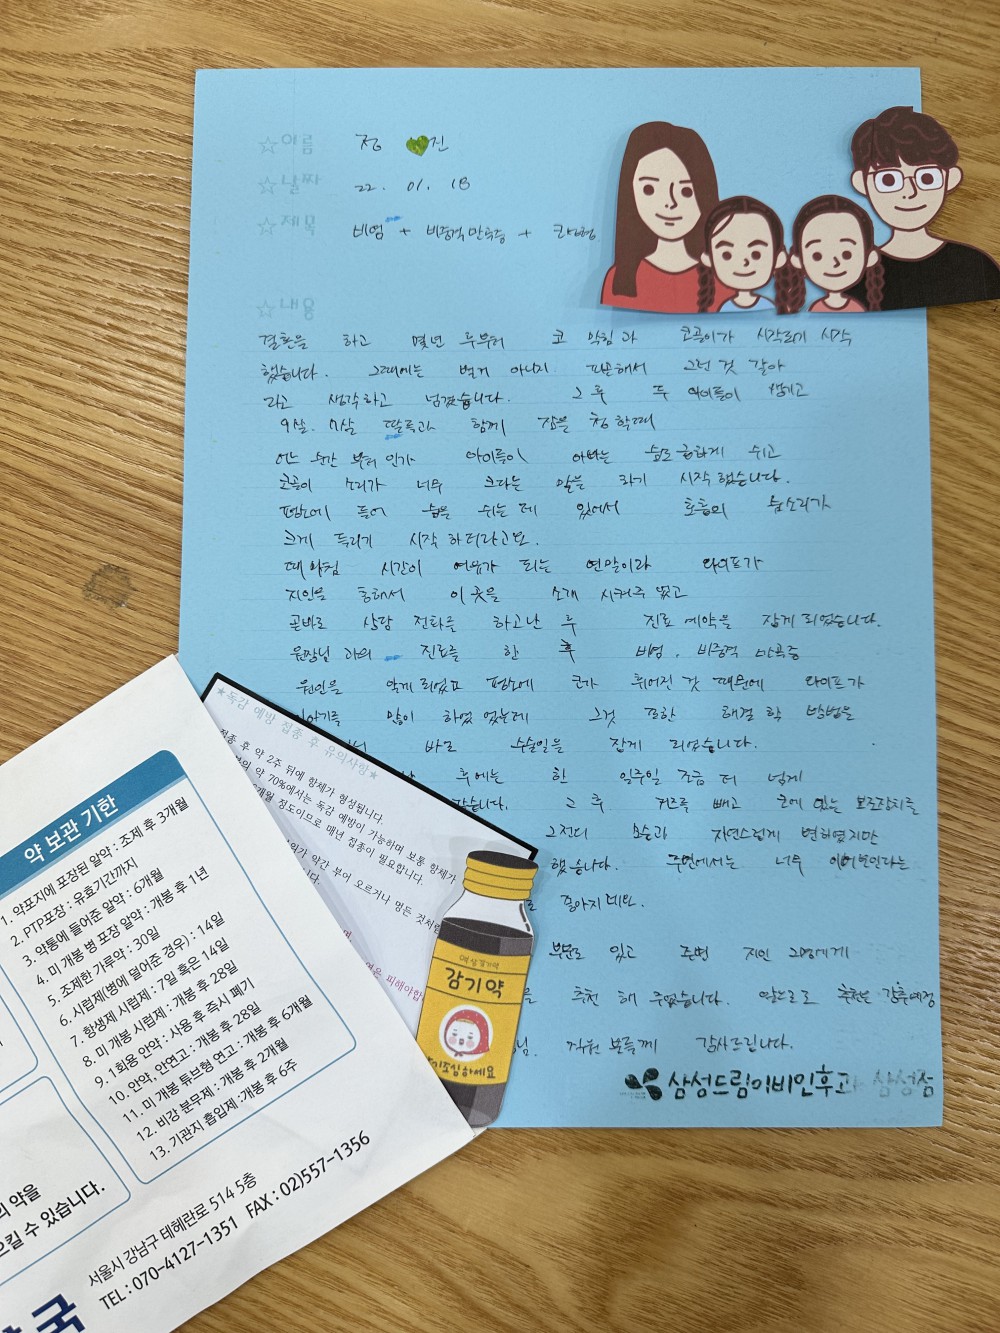 ☆이름 정 진
☆날짜 22. 01. 18
☆제목 비염 + 비중격만곡증 +
☆내용
결혼을 하고 몇년 후부터 코 막힘과 코골이가 시작되기 시작
했습니다. 그때에는 별거 아니지 피곤해서 그런 것 같아
라고 생각하고 넘겼습니다. 그 후 두 아이들이 생기고
9살. 7살 딸들과 함께 잠을 청할때
어느 순간 부터 인가 아이들이 아빠는 숨도 급하게 쉬고
코골이 소리가 너무 크다는 말을 하기 시작했습니다.
평소에 들어 숨을 쉬는데 있어서 호흡의 숨소리가
크게 들리기 시작 하더라고요.
때마침 시간이 여유가 되는 연말이라 와이프가
지인을 통해서 이곳을 소개 시켜주었고
곧바로 상담 전화를 하고난 후 진료 예약을 잡게 되었습니다.
원장님과의 진료를 한 후 비염, 비중격 만곡증
원인을 알게되었고 평소에 코가 휘어진 것 때문에 와이프가
많이 하였었는데 그것 또한 해결 할 방법을
바로 수술일을 잡게 되었습니다.
후에는 한 일주일 조금 더 넘게
그 후 거즈를 빼고 코에 있는 보조장치를
그전디 모습과 자연스럽게 변하였지만
했습니다. 주변에서는 너무
좋아지네요.
부분도 있고 주변 지인 그들에게
추천 해 주었습니다. 앞으로도 추천은 강추예정
직원 분들께 감사드립니다.
삼성드림이비인후과 삼성점
★독감 예방 접종 후 유의사항★
접종 후 약 2주 뒤에 항체가 형성됩니다.
약 70%에서는 독감 예방이 가능하며 보통 항체가
개월 정도이므로 매년 접종이 필요합니다.
약간 부어 오르거나 멍든 것처럼
피해야합
감기약
조심하세요
약 보관 기한
1. 약포지에 포장된 알약 : 조제 후 3개월
2. PTP포장 : 유효기간까지
3. 약통에 들어준 알약 : 6개월
4. 미 개봉 병 포장 알약 : 개봉 후 1년
5. 조제한 가루약 : 30일
6. 시럽제(병에 덜어준 경우) : 14일
7. 항생제 시럽제 : 7일 혹은 14일
8. 미 개봉 시럽제 : 개봉 후 28일
9. 1회용 안약 : 사용 후 즉시 폐기
10. 안약, 안연고 : 개봉 후 28일
11. 미 개봉 튜브형 연고 : 개봉 후 6개월
12. 비강 분무제 : 개봉 후 2개월
13. 기관지 흡입제 : 개봉 후 6주
의 약을
으킬 수 있습니다.
서울시 강남구 테헤란로 514 5층
TEL : 070-4127-1351 FAX : 02)557-1356
국